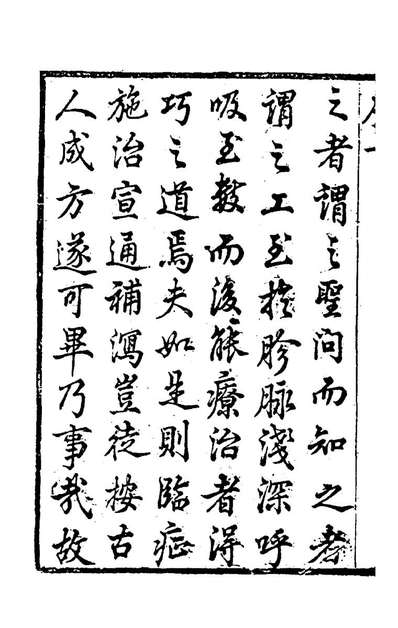 之者謂之聖問而知之者
謂之工至於胗脉淺深呼
吸至數而後能療治者得
巧之道焉夫如是則臨症
施治宣通補瀉豈徒按古
人成方遂可畢乃事哉故